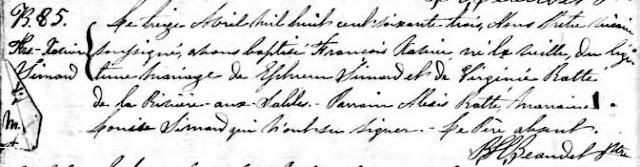 B. 85.
Frs. Xavier
Simard
Le treize Avril mil huit cent soixante trois, Nous Prêtre vicaire
soussigné, avons baptisé François Xavier, né la veille, du légi-
time mariage de Ephrem Simard et de Virginie Ratté
de la Rivière-aux-Sables. Parrain Alexis Ratté, Marraine
Louise Simard qui n'ont su signer. Le Père absent.
Beaudet Ptre